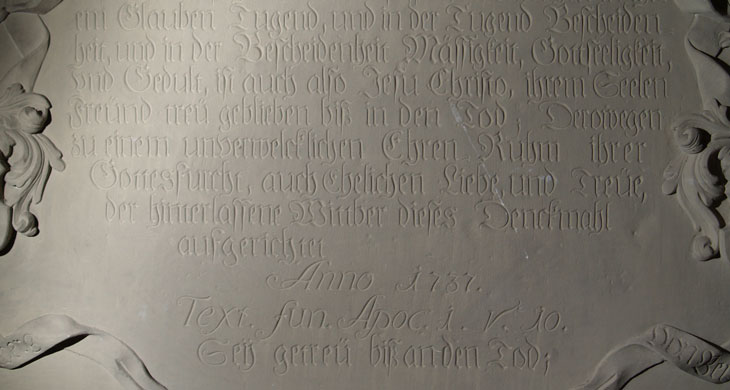 ein Glauben Tugend, und in der Tugend Bescheiden
heit, und in der Bescheidenheit Mässigkeit, Gottseeligkeit,
und Gedult, ist auch also Jesu Christo, ihrem Seelen
Freund treü geblieben biß in den Tod Derowegen
zu einem unverwelcklichen Ehren Ruhm ihrer
Gottesfurcht, auch Ehelichen Liebe, und Treüe,
der hinterlassene Wittber dieses Denckmahl
aufgerichtet
Anno 1737.
Text. fun. Apoc. 1. v. 10.
Seÿ getreü biß an den Tod;